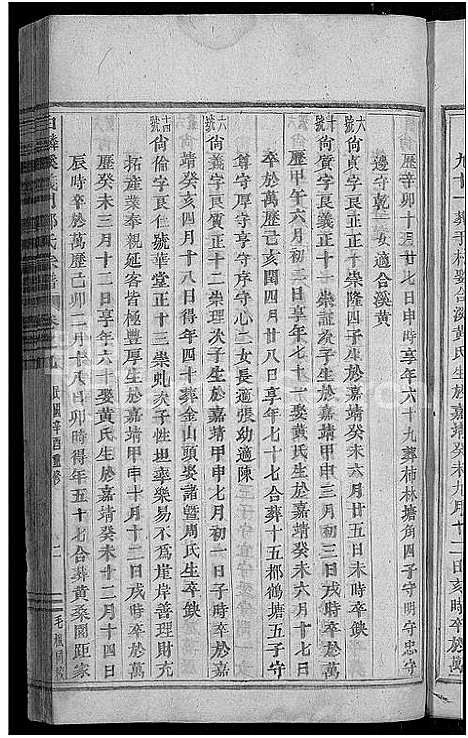 九十一葬于村婺合溪黄氏生於嘉靖癸未九月十二日亥時卒於萬
歷辛卯十月廿九日申時享年六十九葬柿林塘角四子守明守忠守
邊守乾一女適合溪黄
六號尙貞字良正十一崇隆四子生於嘉靖癸未六月廿五日未時卒缺
十號尙質字良義正十一崇証次子生於嘉靖甲申三月初三日卒於萬
歷甲午六月初三日享年七十一娶黄氏生於嘉靖癸未七月初七日
卒於萬歷己亥閏四月廿八日享年七十七合葬十五都鶴塘五子守
尊守厚守亨守序守心二女長適張幼適陳
六號尙義字良賓正十二崇理次子生於嘉靖甲申七月初一日子時卒於嘉
靖癸亥四月十八日得年四十葬金山頭娶諸曁周氏生卒缺
十一號尙倫字良仁號華堂正十三崇虬次子性坦率樂易不為崖岸善理財充
拓產業奉親延客皆極豐厚生於嘉靖甲申十月十二日戌時卒於萬
歷癸未三月十二日享年六十娶黄氏生於嘉靖癸未十二月十四日
辰時卒於萬歷己卯二月十八日卯時得年五十七合葬黄桑園距家